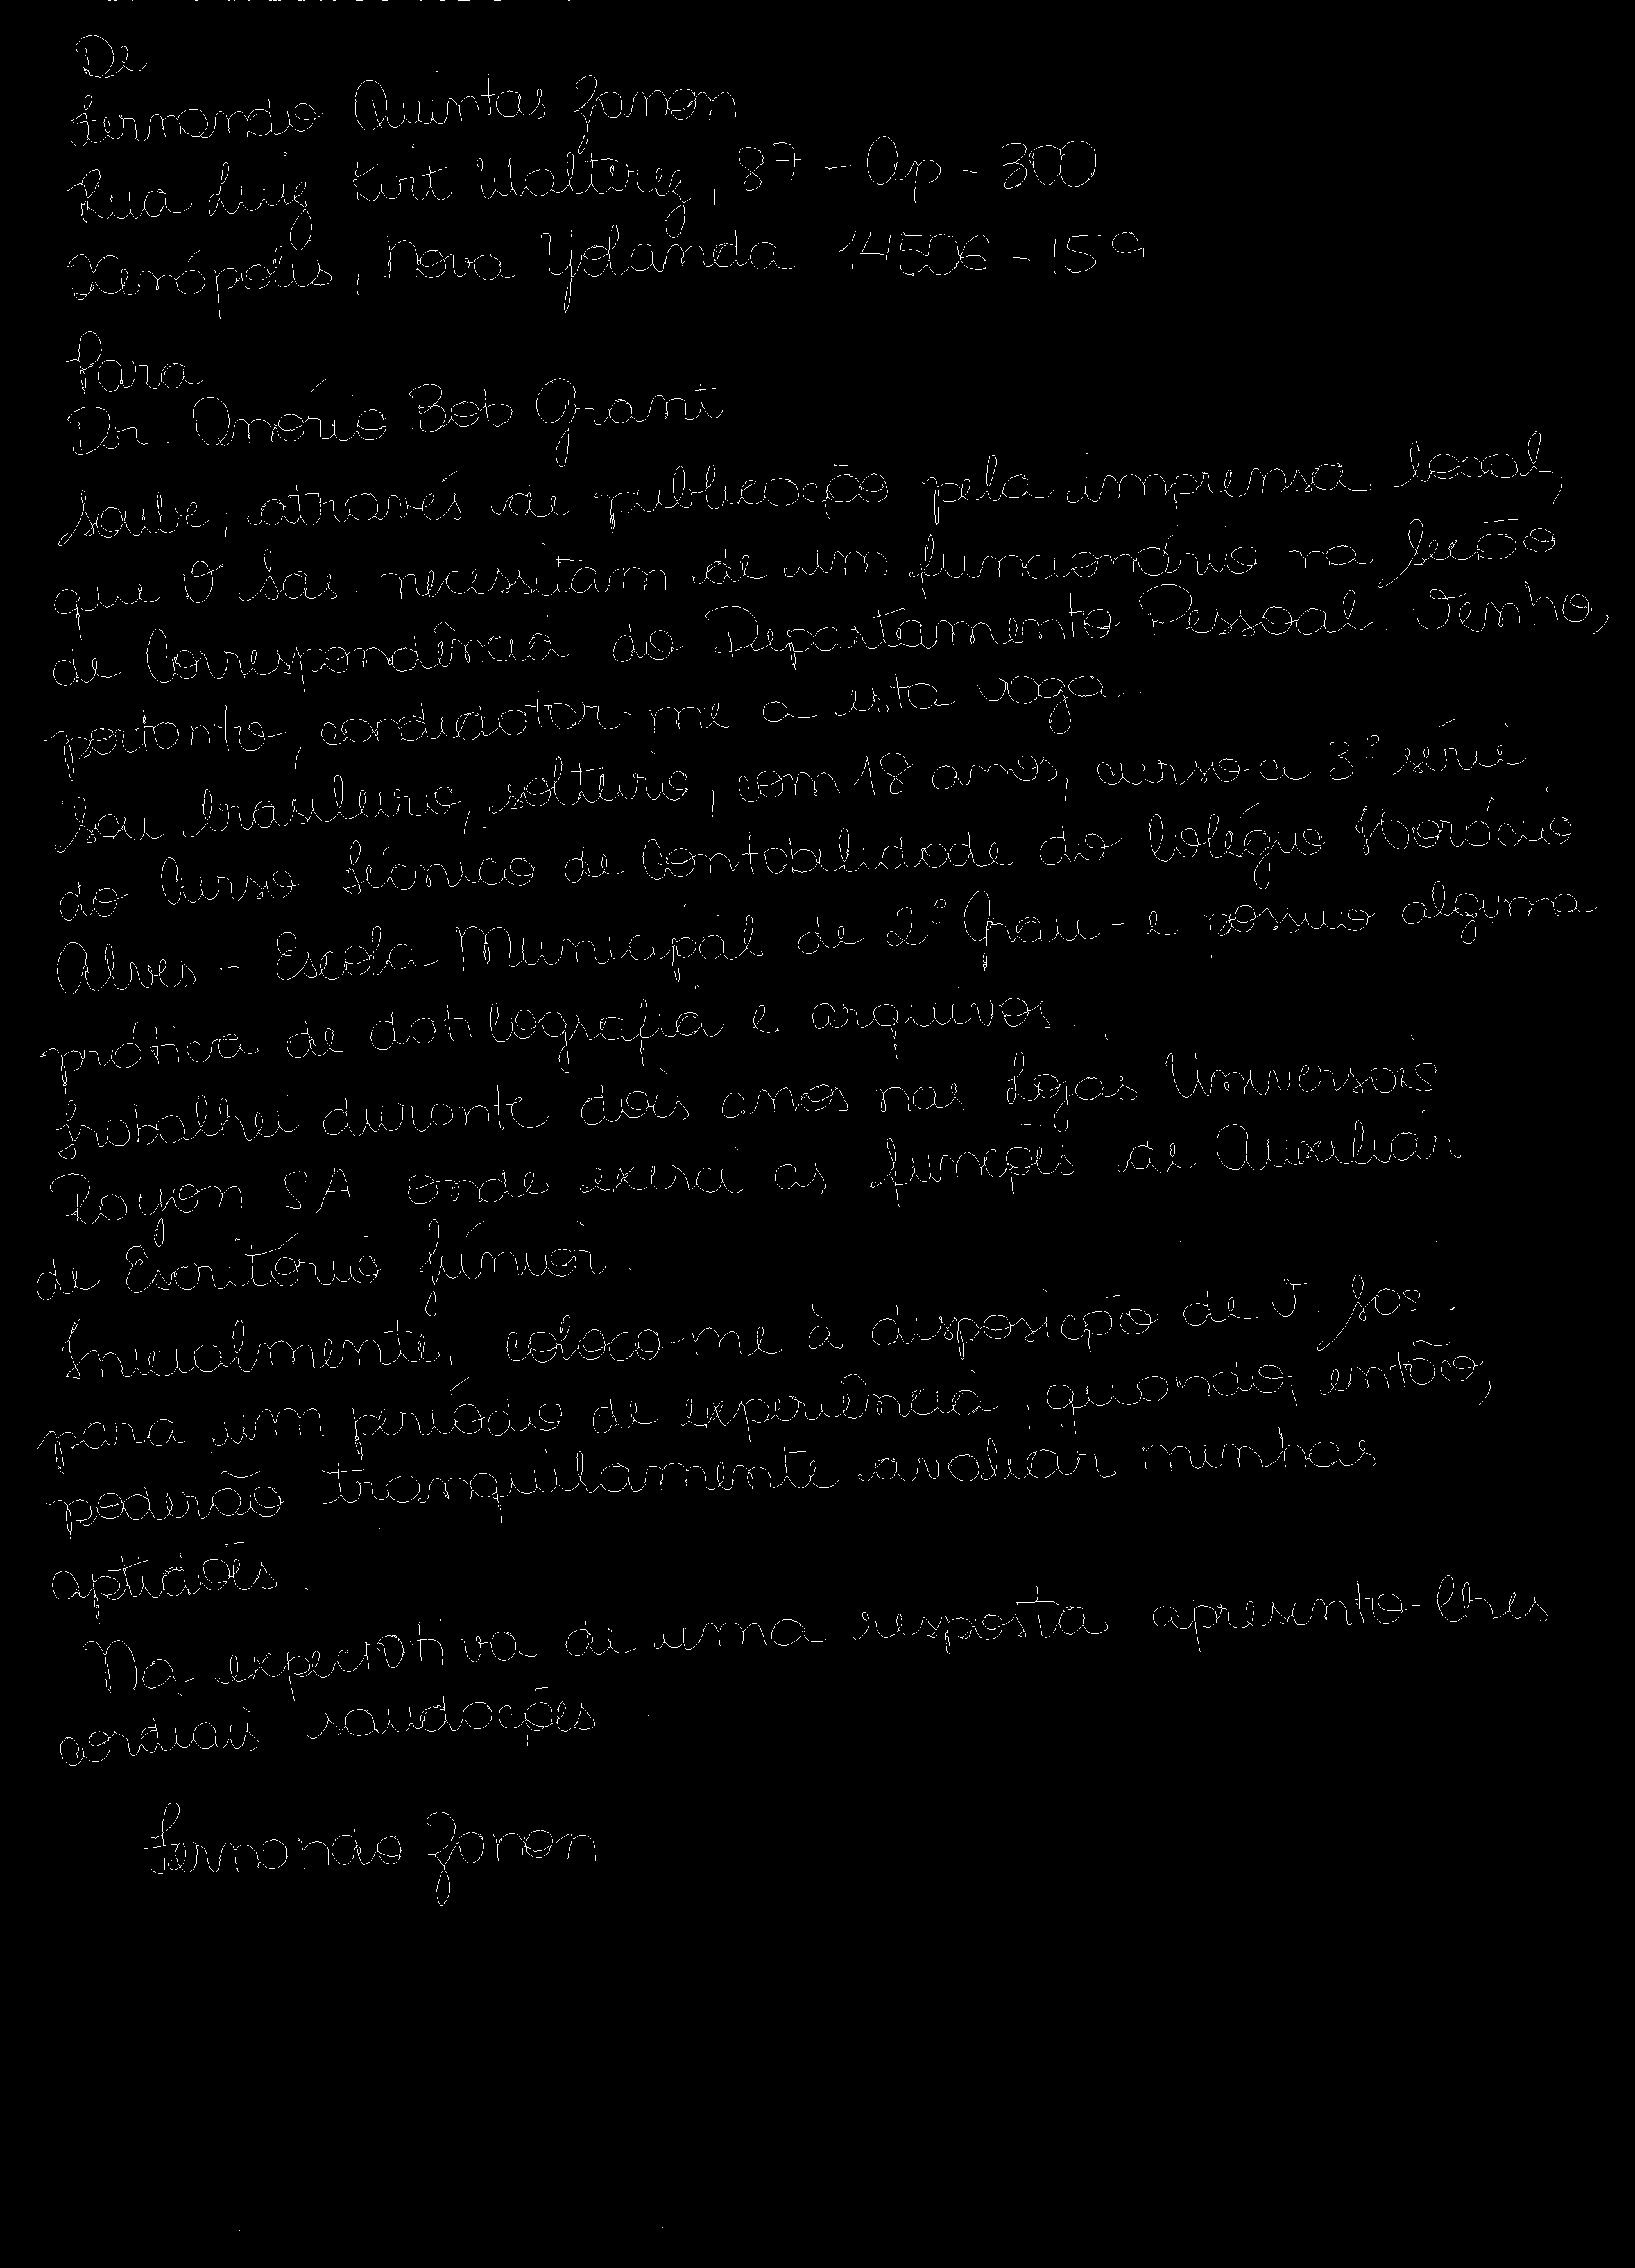 De
Fernando Quintas Zanon
Rua Luiz Kirt Walterez, 87 - Ap - 300
Xenópolis, Nova Yolanda 14506-159
Para
Dr. Onório Bob Grant
Soube, através de publicação pela imprensa local,
que V. Sas. necessitam de um funcionário na Secção
de Correspondência do Departamento Pessoal. Venho,
portanto, candidatar-me a esta vaga.
Sou brasileiro, solteiro, com 18 anos, curso a 3ª série
do Curso Técnico de Contabilidade do Colégio Horácio
Alves - Escola Municipal de 2º Grau - e possuo alguma
prática de datilografia e arquivos.
Trabalhei durante dois anos nas Lojas Universais
Rayon SA. onde exerci as funções de Auxiliar
de Escritório Júnior.
Inicialmente, coloco-me à disposição de V. Sas.
para um período de experiência, quando, então,
poderão tranquilamente avaliar minhas
aptidões.
Na expectativa de uma resposta apresento-lhes
cordiais saudações.
Fernando Zanon